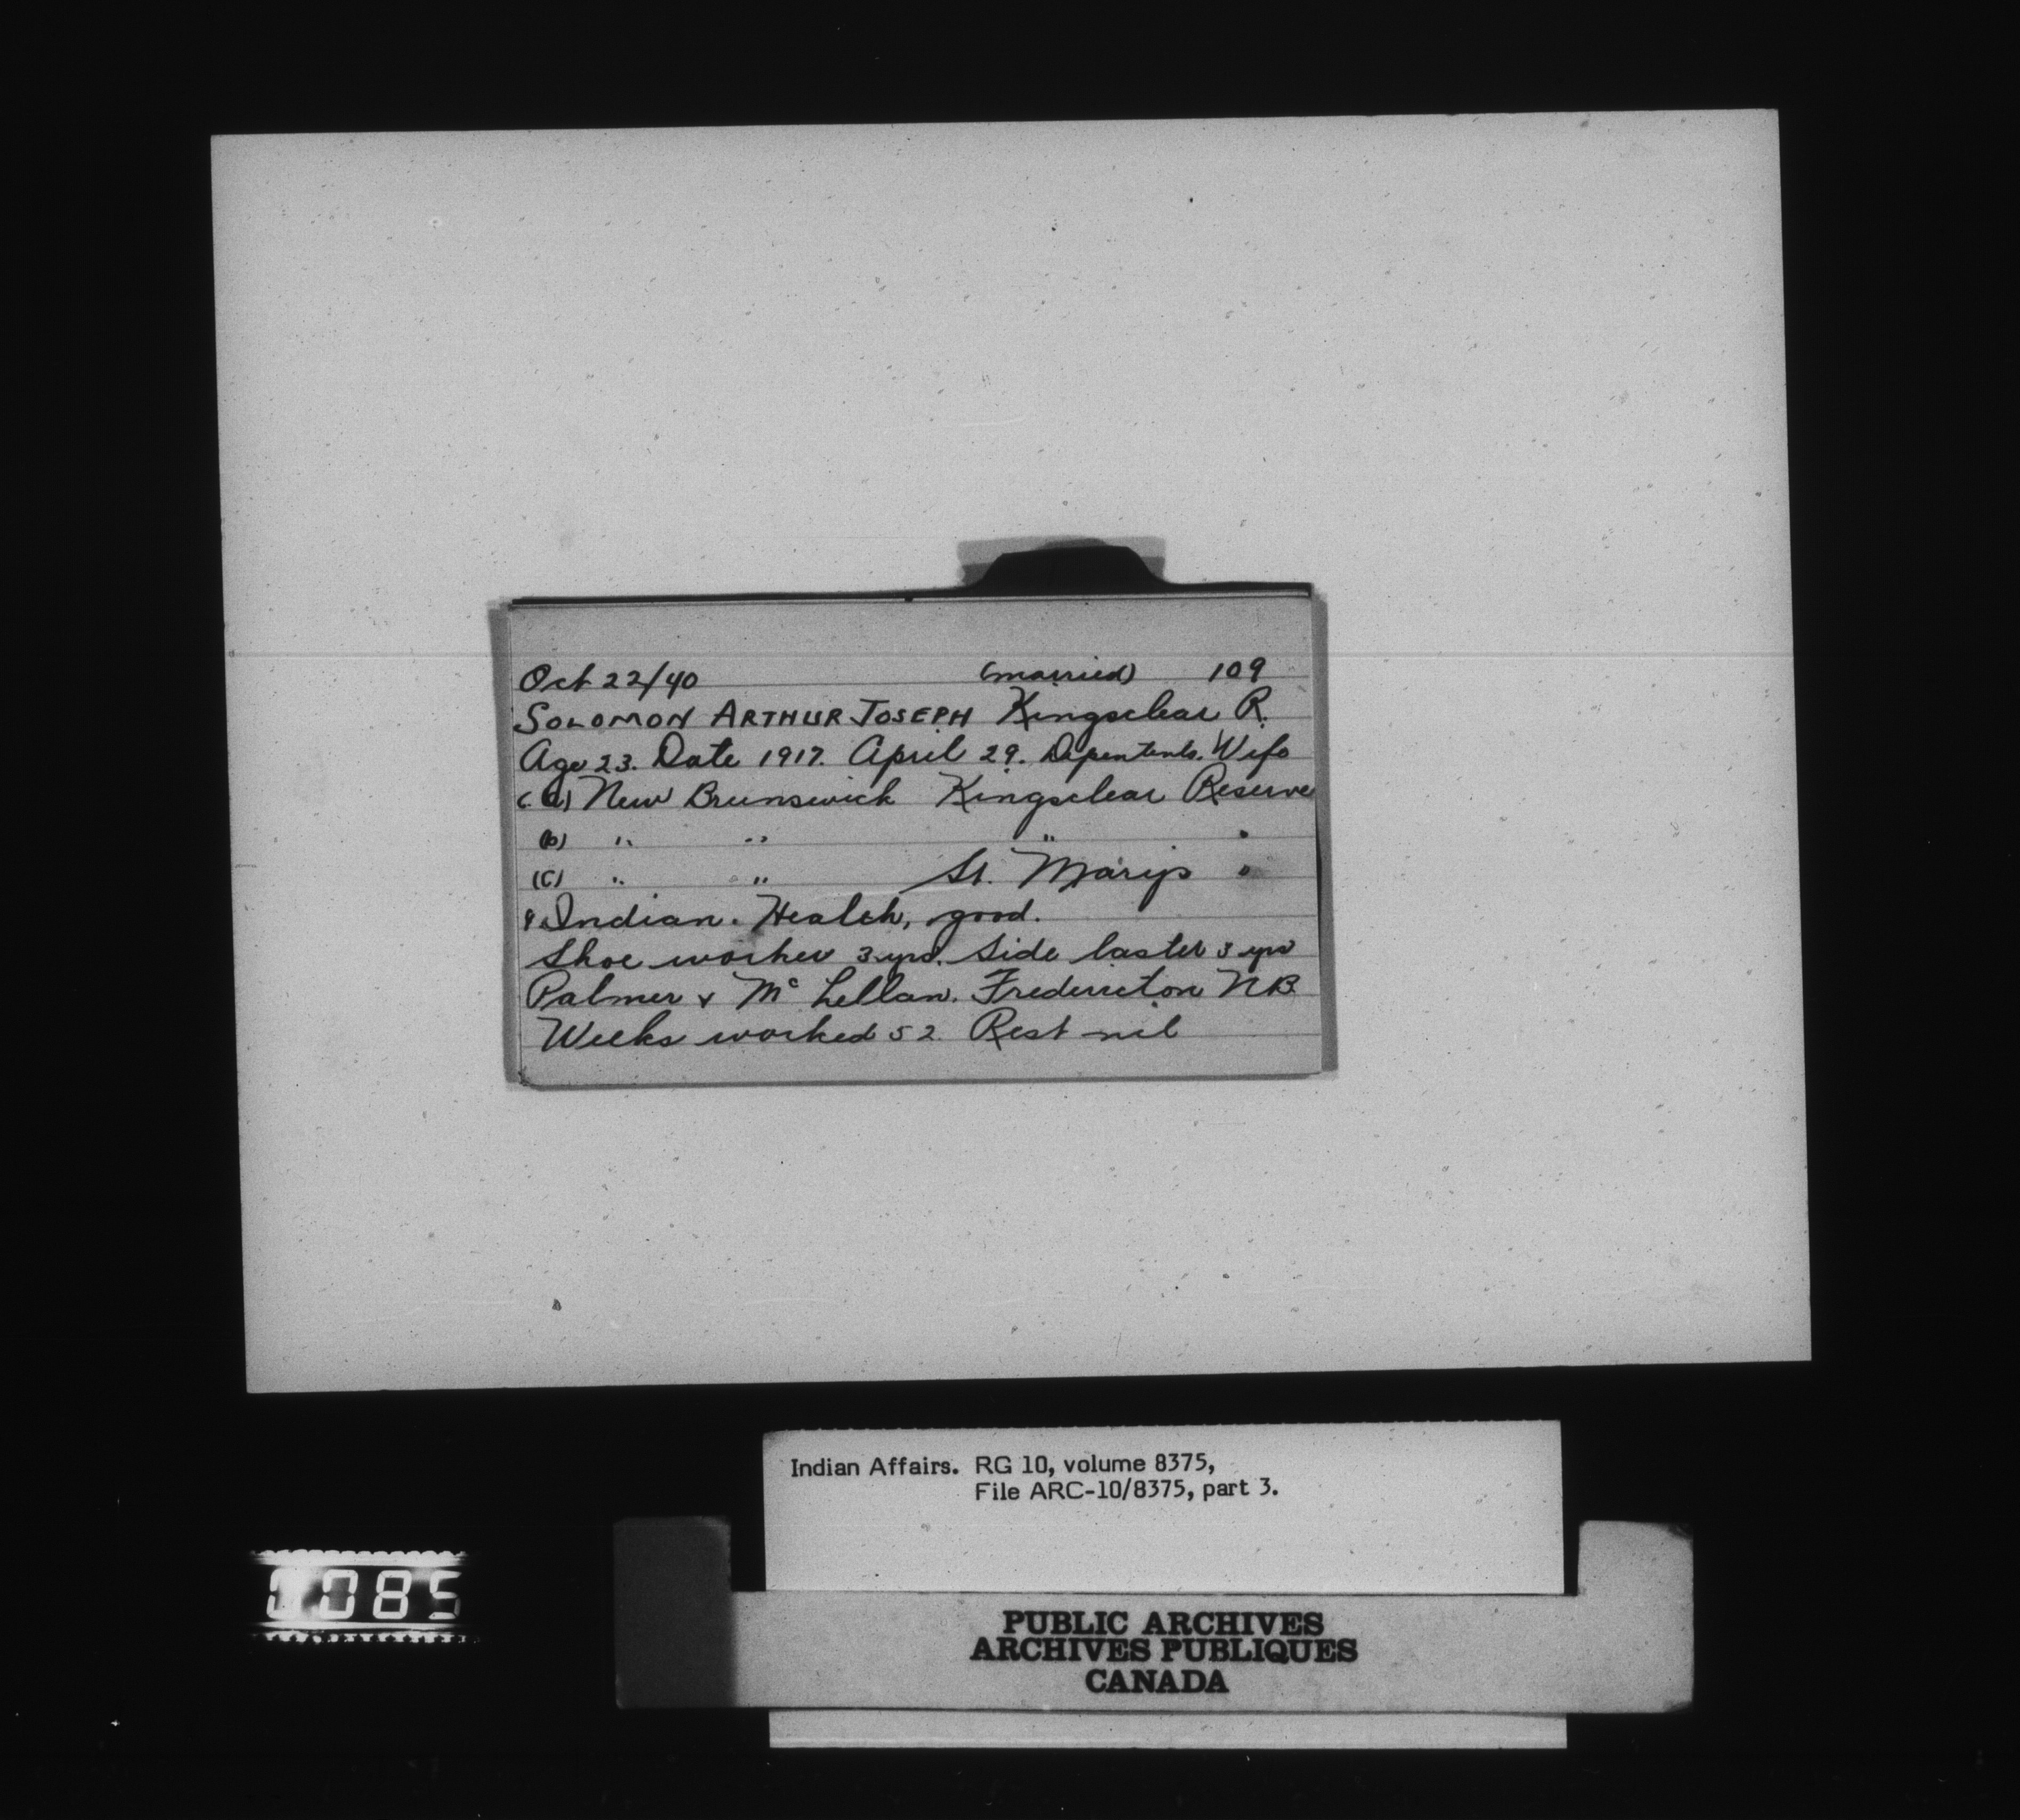 Oct 22/40 (married) 109
SOLOMON ARTHUR JOSEPH Kingsclear R.
Age 23. Date 1917. April 29. Dependents. Wife
(a) New Brunswick Kingsclear Reserve
(b) " " " "
(c) " " St. Marys "
Indian. Health, good.
Shoe worker 3 yrs. Side laster 3 yrs
Palmer & Mc Lellan. Fredericton N.B.
Weeks worked 52. Rest nil
Indian Affairs. RG 10, volume 8375,
File ARC-10/8375, part 3.
0085
PUBLIC ARCHIVES
ARCHIVES PUBLIQUES
CANADA